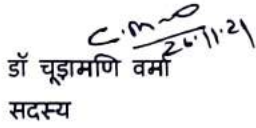 26.11.21
डॉ चूड़ामणि वर्मा
सदस्य